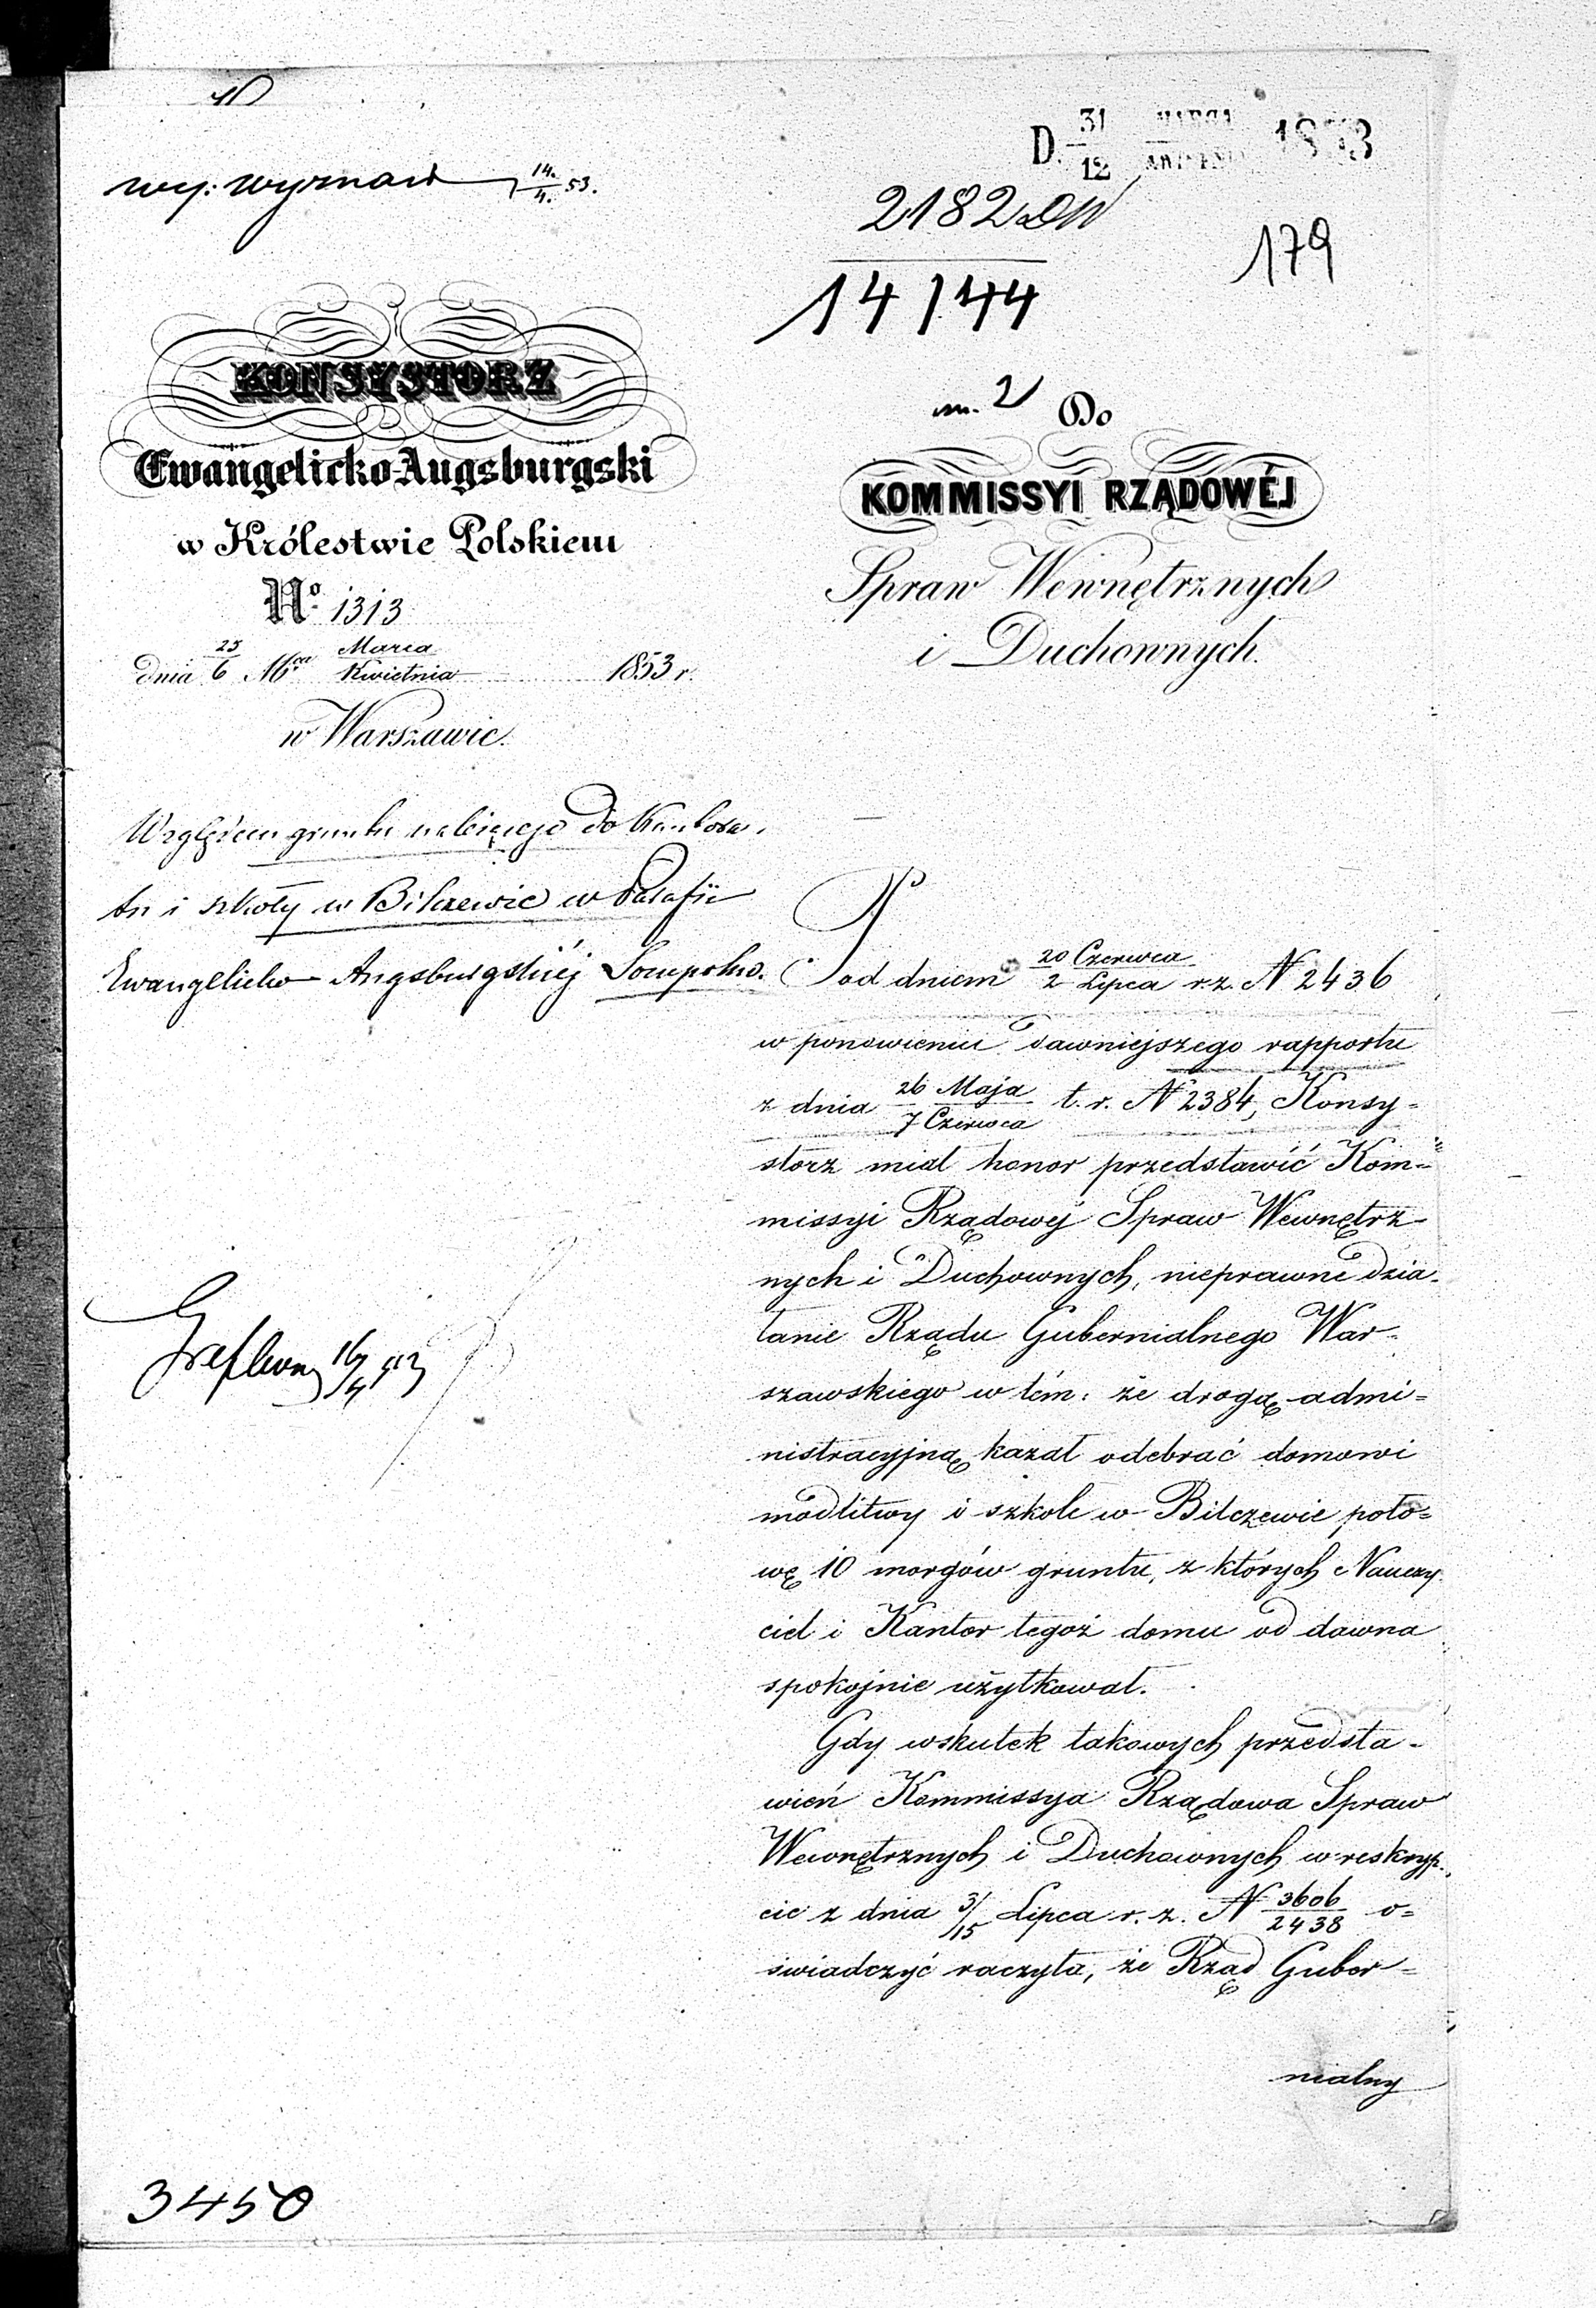 wy: wyznań 14/4. 53.
D. 31/12 MARCA/KWIETNIA 1853
2182
14144
179
KONSYSTORZ
Ewangelicko-Augsburgski
w Królestwie Polskiem
No. 1313
dnia 25/6 Mca Marca/Kwietnia 1853 r.
w Warszawie.
Względem gruntu należącego do Kantora-
tu i szkoły w Bilczewie w Parafii
Ewangelicko Augsburgskiéj Sompolno.
16/4 53
3450
m. 2 Do
KOMMISSYI RZĄDOWÉJ
Spraw Wewnętrznych
i Duchownych.
Pod dniem 20 Czerwca/2 Lipca r.z. N 2436
w ponowieniu dawniejszego rapportu
z dnia 26 Maja/7 Czerwca t.r. N 2384, Konsy=
storz miał honor przedstawić Kom=
missyi Rządowéj Spraw Wewnętrz-
nych i Duchownych, nieprawne dzia-
łanie Rządu Gubernialnego War-
szawskiego w tém: że drogą admi=
nistracyjną kazał odebrać domowi
modlitwy i szkole w Bilczewie poło=
wę 10 morgów gruntu, z których Nauczy
ciel i Kantor tegoż domu od dawna
spokojnie użytkował.
Gdy wskutek takowych przedsta-
wień Kommissya Rządowa Spraw
Wewnętrznych i Duchownych w reskryp-
cie z dnia 3/15 Lipca r. z. N 3606/2438 o=
świadczyć raczyła, że Rząd Guber=
nialny